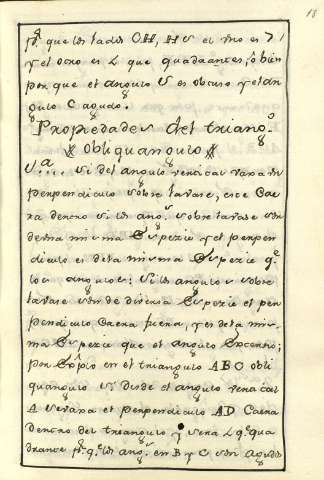 18
pr. que los lados OH, HS el vno es 7
y el otro es L que quadrantes, ô bien
por que el angulo S es obtuso y el an
gulo C agudo.
Propiedades del triang.º
obliquangulo
5.ª... Si del angulo vertical vaxa vn
perpendiculo sobre la vase, este Cae
ra dentro si los ang.s sobre la vase son
de vna misma Espezie y el perpen
diculo es de la misma Espezie q.e
los angulos: si los angulos sobre
la vase son de diversa Espezie el per
pendiculo Caera fuera, y es de la mis
ma Espezie que el angulo Externo;
por Exemplo en el triangulo ABC obli
quangulo si desde el angulo vertical
A se vaxa el perpendiculo AD Caera
dentro del triangulo y sera L q.e qua
drante pr. q.e los ang.s en B y C son agudos